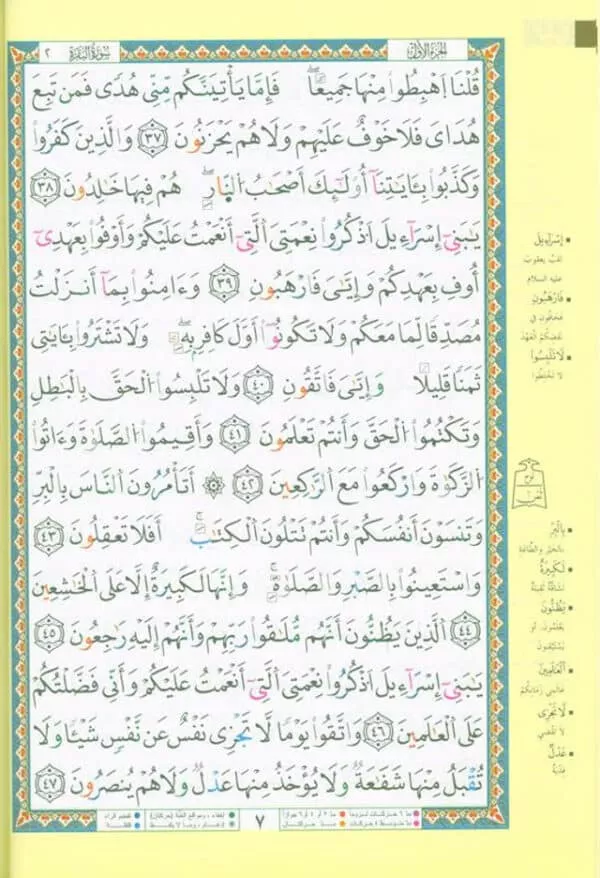 الجزء الأول
سورة البقرة ٢
قُلْنَا اَهْبِطُوا۟ مِنْهَا جَمِيعًا فَإِمَّا يَأْتِيَنَّكُم مِّنِّى هُدًى فَمَن تَبِعَ
هُدَاىَ فَلَا خَوْفٌ عَلَيْهِمْ وَلَا هُمْ يَحْزَنُونَ ٣٧ وَالَّذِينَ كَفَرُوا۟
وَكَذَّبُوا۟ بِـَٔايَٰتِنَآ أُو۟لَٰٓئِكَ أَصْحَٰبُ النَّارِ هُمْ فِيهَا خَٰلِدُونَ ٣٨
يَٰبَنِىٓ إِسْرَآءِيلَ اَذْكُرُوا۟ نِعْمَتِىَ اَلَّتِىٓ أَنْعَمْتُ عَلَيْكُمْ وَأَوْفُوا۟ بِعَهْدِىٓ
أُوفِ بِعَهْدِكُمْ وَإِيَّٰىَ فَارْهَبُونِ ٣٩ وَءَامِنُوا۟ بِمَآ أَنزَلْتُ
مُصَدِّقًا لِّمَا مَعَكُمْ وَلَا تَكُونُوٓا۟ أَوَّلَ كَافِرٍۭ بِهِۦ وَلَا تَشْتَرُوا۟ بِـَٔايَٰتِى
ثَمَنًا قَلِيلًا وَإِيَّٰىَ فَاتَّقُونِ ٤٠ وَلَا تَلْبِسُوا۟ اَلْحَقَّ بِالْبَٰطِلِ
وَتَكْتُمُوا۟ اَلْحَقَّ وَأَنتُمْ تَعْلَمُونَ ٤١ وَأَقِيمُوا۟ اَلصَّلَوٰةَ وَءَاتُوا۟
اَلزَّكَوٰةَ وَارْكَعُوا۟ مَعَ اَلرَّٰكِعِينَ ٤٢ ۞ أَتَأْمُرُونَ اَلنَّاسَ بِالْبِرِّ
وَتَنسَوْنَ أَنفُسَكُمْ وَأَنتُمْ تَتْلُونَ اَلْكِتَٰبَ أَفَلَا تَعْقِلُونَ ٤٣
وَاسْتَعِينُوا۟ بِالصَّبْرِ وَالصَّلَوٰةِ وَإِنَّهَا لَكَبِيرَةٌ إِلَّا عَلَى اَلْخَٰشِعِينَ
٤٤ اَلَّذِينَ يَظُنُّونَ أَنَّهُم مُّلَٰقُوا۟ رَبِّهِمْ وَأَنَّهُمْ إِلَيْهِ رَٰجِعُونَ ٤٥
يَٰبَنِىٓ إِسْرَآءِيلَ اَذْكُرُوا۟ نِعْمَتِىَ اَلَّتِىٓ أَنْعَمْتُ عَلَيْكُمْ وَأَنِّى فَضَّلْتُكُمْ
عَلَى اَلْعَٰلَمِينَ ٤٦ وَاتَّقُوا۟ يَوْمًا لَّا تَجْزِى نَفْسٌ عَن نَّفْسٍ شَيْـًٔا وَلَا
تُقْبَلُ مِنْهَا شَفَٰعَةٌ وَلَا يُؤْخَذُ مِنْهَا عَدْلٌ وَلَا هُمْ يُنصَرُونَ ٤٧
إِسْرَآءِيلَ
لقب يعقوب
عليه السلام
فَارْهَبُونِ
فخافون في
نقضكم العهد
لَا تَلْبِسُوا
لا تخلطوا
بِالْبِرِّ
بالخير والطاعة
لَكَبِيرَةٌ
لشاقة ثقيلة
يَظُنُّونَ
يعلمون، أو
يستيقنون
الْعَالَمِينَ
عالمي زمانكم
لَا تَجْزِى
لا تقضي
عَدْلٌ
فدية
٧